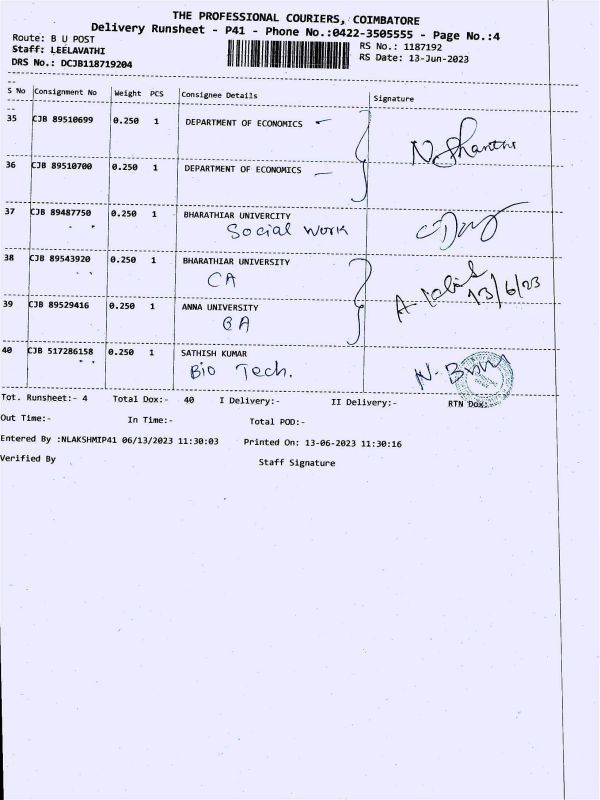 THE PROFESSIONAL COURIERS, COIMBATORE
Delivery Runsheet - P41 - Phone No.:0422-3505555 - Page No.:4
Route: B U POST
RS No.: 1187192
Staff: LEELAVATHI
RS Date: 13-Jun-2023
DRS No.: DCJB118719204
S No Consignment No Weight PCS Consignee Details Signature
35 CJB 89510699 0.250 1 DEPARTMENT OF ECONOMICS
N. Shanthi
36 CJB 89510700 0.250 1 DEPARTMENT OF ECONOMICS
37 CJB 89487750 0.250 1 BHARATHIAR UNIVERCITY
Social Work
38 CJB 89543920 0.250 1 BHARATHIAR UNIVERSITY
CA
13/6/23
39 CJB 89529416 0.250 1 ANNA UNIVERSITY
CA
40 CJB 517286158 0.250 1 SATHISH KUMAR
Bio Tech.
Tot. Runsheet:- 4 Total Dox:- 40 I Delivery:- II Delivery:- RTN Dox:-
Out Time:- In Time:- Total POD:-
Entered By :NLAKSHMIP41 06/13/2023 11:30:03 Printed On: 13-06-2023 11:30:16
Verified By Staff Signature